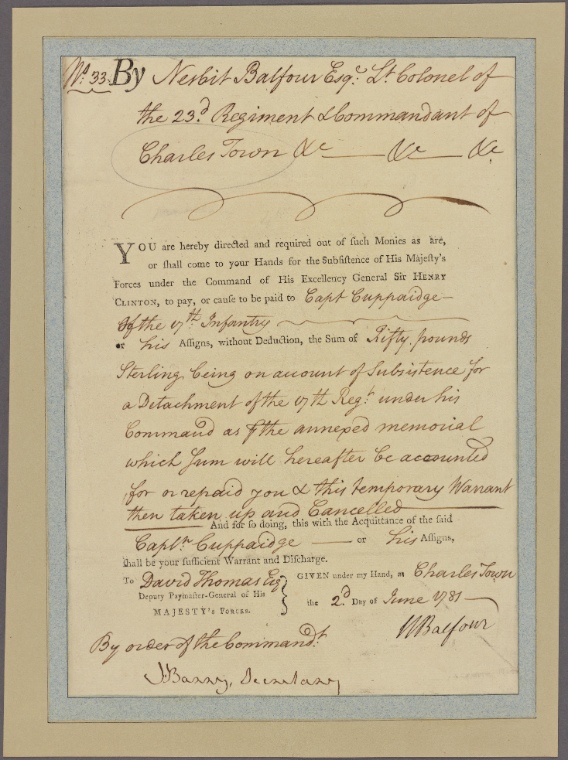 No. 33. By Nesbit Balfour Esqr. Lt. Colonel of
the 23d. Regiment & Commandant of
Charles Town &c — &c — &c
YOU are hereby directed and required out of such Monies as are,
or shall come to your Hands for the Subsistence of His Majesty's
Forces under the Command of His Excellency General Sir HENRY
CLINTON, to pay, or cause to be paid to Capt Cuppaidge —
of the 17th Infantry
or his Assigns, without Deduction, the Sum of Fifty pounds
Sterling being on account of Subsistence for
a Detachment of the 17th Regt. under his
Command as ⅌ the annexed memorial
which Sum will hereafter be accounted
for or repaid you & this temporary Warrant
then taken up and Cancelled
And for so doing, this with the Acquittance of the said
Captn. Cuppaidge — or his Assigns,
shall be your sufficient Warrant and Discharge.
To David Thomas Esqr
Deputy Paymaster-General of His
MAJESTY's Forces.
GIVEN under my Hand, at Charles Town
the 2d. Day of June 1781 —
NBalfour
By order of the Commandt.
Barry, Secretary